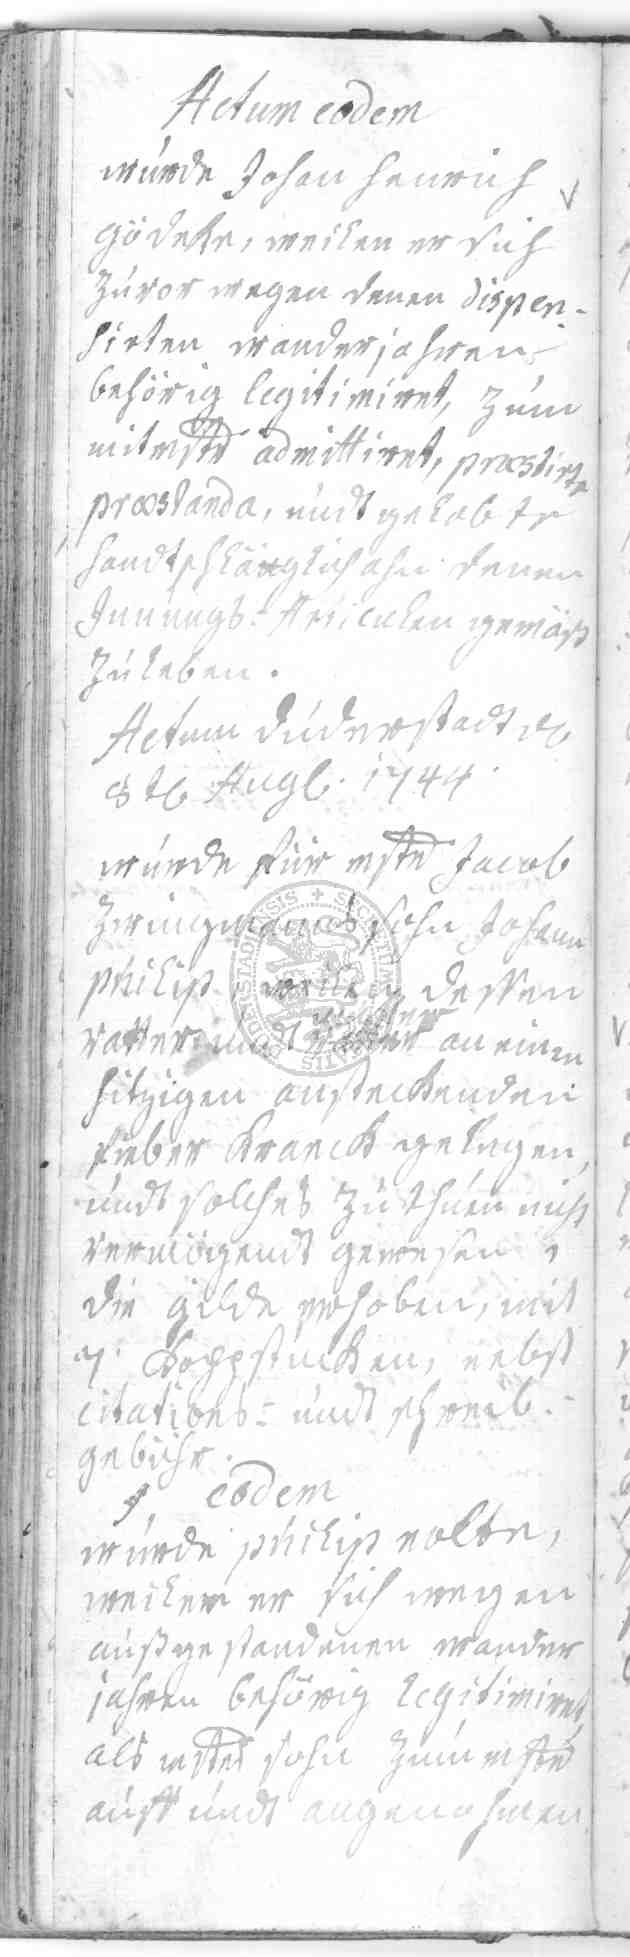 Actum eodem
wurde Johan Henrich
Gödeke, weilen er sich
zuvor wegen denen dispen-
sirten wanderjahren
behörig legitimiret, zum
mitmstr admittiret, præstirte
præstanda, undt gelobte
handtschläglich ahn denen
Innungs-Articulen gemäß
zu leben.
Actum Duderstadt d
8 t Aug. 1744
wurde für mstr Jacob
Zwingmanns sohn Johann
Philip, weilen dessen
vatter undt mutter an einen
hitzigen ansteckenden
fieber kranck gelegen,
undt solches zu thuen nicht
vermögendt gewesen,
die gilde erhoben, mit
7 Koppstücken, nebst
citations- undt schreib-
gebühr.
eodem
wurde Philip Nolte,
weilen er sich wegen
außgestandenen wander
jahren behörig legitimiret,
als mstrs sohn zum mstr
auff undt angenohmen
SECRETUM
DUDERSTADIENSIS